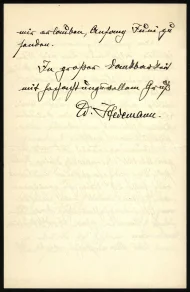 mir erlauben, Anfang Juni zu
senden.
In großer Dankbarkeit
mit hochachtungsvollem Gruß
W. Hedemann.